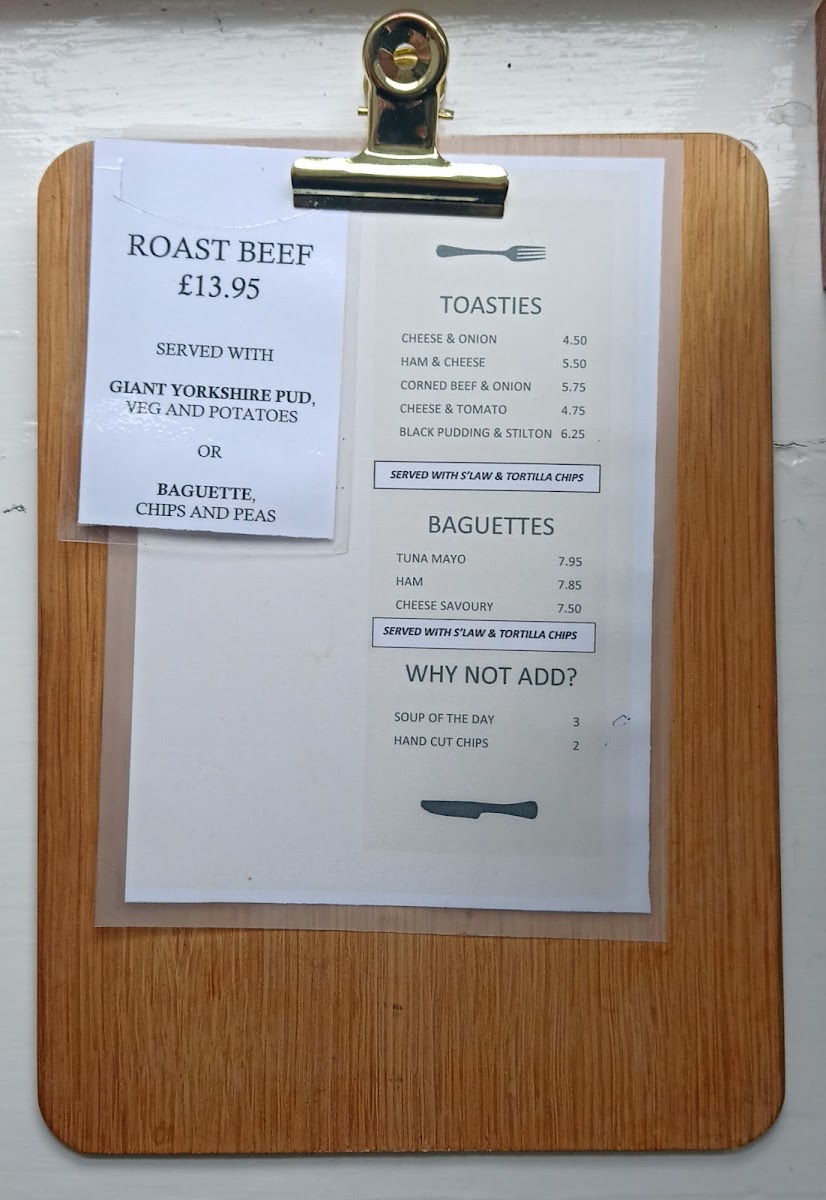 ROAST BEEF
£13.95
SERVED WITH
GIANT YORKSHIRE PUD,
VEG AND POTATOES
OR
BAGUETTE,
CHIPS AND PEAS
TOASTIES
CHEESE & ONION 4.50
HAM & CHEESE 5.50
CORNED BEEF & ONION 5.75
CHEESE & TOMATO 4.75
BLACK PUDDING & STILTON 6.25
SERVED WITH S'LAW & TORTILLA CHIPS
BAGUETTES
TUNA MAYO 7.95
HAM 7.85
CHEESE SAVOURY 7.50
SERVED WITH S'LAW & TORTILLA CHIPS
WHY NOT ADD?
SOUP OF THE DAY 3
HAND CUT CHIPS 2